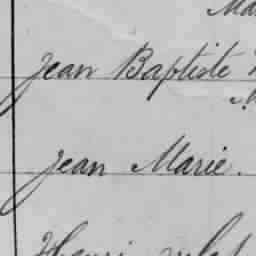 Ma
Jean Baptiste
Jean Marie.
Henri